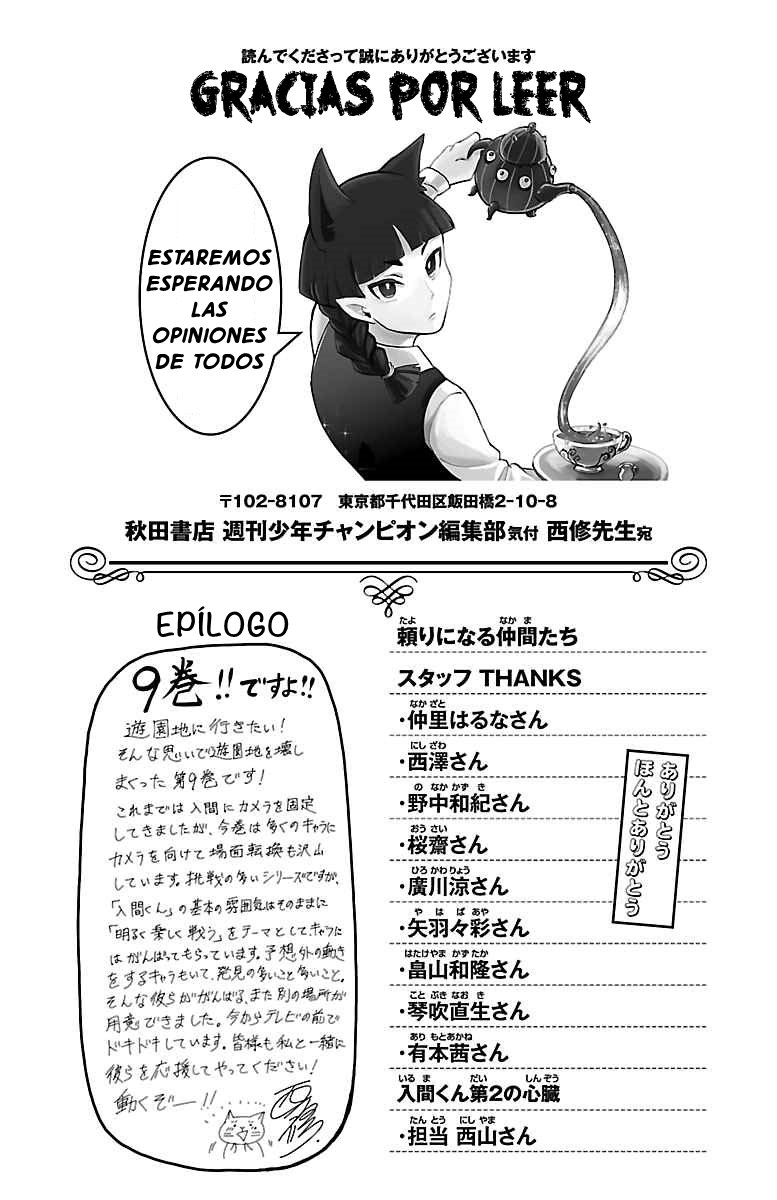 読んでくださって誠にありがとうございます
GRACIAS POR LEER
ESTAREMOS
ESPERANDO
LAS
OPINIONES
DE TODOS
〒102-8107　東京都千代田区飯田橋2-10-8
秋田書店 週刊少年チャンピオン編集部気付 西修先生宛
EPÍLOGO
9巻!!ですよ!!
遊園地に行きたい!
そんな思いで遊園地を壊し
まくった第9巻です!
これまでは入間にカメラを固定
してきましたが、今巻は多くのキャラに
カメラを向けて場面転換も沢山
しています。挑戦の多いシリーズですが、
「入間くん」の基本の雰囲気はそのままに
「明るく楽しく戦う」をテーマとしてキャラに
はがんばってもらっています。予想外の動き
をするキャラもいて、発見の多いこと多いこと。
そんな彼らががんばる、また別の場所が
用意できました。今からテレビの前で
ドキドキしています。皆様も私と一緒に
彼らを応援してやってください!
動くぞー!!
西修
頼りになる仲間たち
たよ なかま
スタッフ THANKS
・仲里はるなさん
なかざと
・西澤さん
にしざわ
・野中和紀さん
のなかかずき
・桜齋さん
おうさい
・廣川涼さん
ひろかわりょう
・矢羽々彩さん
やはばあや
・畠山和隆さん
はたけやまかずたか
・琴吹直生さん
ことぶきなおき
・有本茜さん
ありもとあかね
入間くん第2の心臓
いるま だい しんぞう
・担当 西山さん
たんとう にしやま
ありがとう
ほんとありがとう